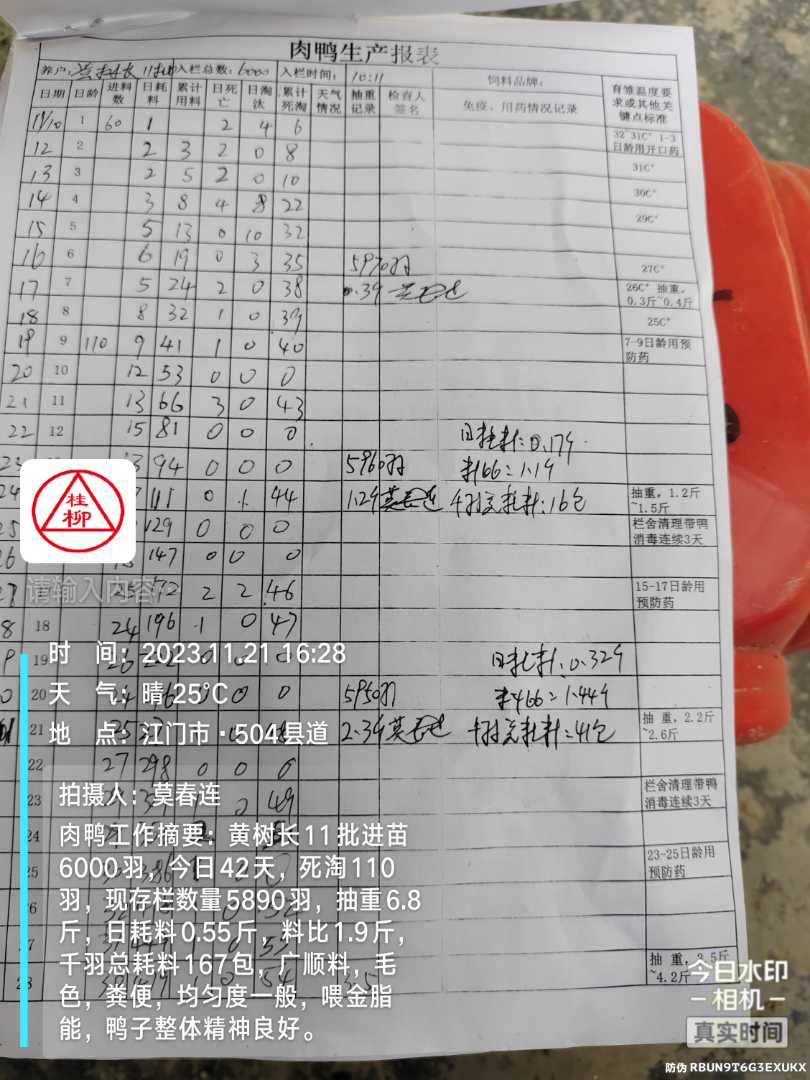 肉鸭生产报表
养户: 11批 入栏总数:6000 入栏时间: 10.11 饲料品牌:
日期 日龄 进料数 日耗料 累计用料 日死亡 日淘汰 累计死淘 天气情况 抽重记录 检查人签名 免疫、用药情况记录 育雏温度要求或其他关键点标准
11/10 1 60 1 2 4 6 32~31C° 1-3日龄用开口药
12 2 2 3 2 0 8
13 3 2 5 2 0 10 31C°
14 4 3 8 4 8 22 30C°
15 5 5 13 0 10 32 29C°
16 6 6 19 0 3 35 5970羽 27C°
17 7 5 24 2 0 38 0.39 莫春连 26C° 抽重,0.3斤~0.4斤
18 8 8 32 1 0 39 25C°
19 9 110 9 41 1 0 40 7-9日龄用预防药
20 10 12 53 0 0 0
21 11 13 66 3 0 43
22 12 15 81 0 0 0 日耗料:0.179
23 13 94 0 0 0 5960羽 料比=1.19
24 111 0 1 44 1.29 莫春连 千羽总耗料:16包 抽重,1.2斤~1.5斤
25 129 0 0 0 栏舍清理带鸭消毒连续3天
26 147 0 0 0
27 172 2 2 46 15-17日龄用预防药
8 18 24 196 1 0 47
19 26 0 0 日耗料:0.329
20 0 0 5950羽 料比=1.449
21 2.39 莫春连 千羽总耗料=41包 抽重,2.2斤~2.6斤
22 27 298 0 0 0
23 49 栏舍清理带鸭消毒连续3天
24
25 23-25日龄用预防药
26
27
28 抽重,3.5斤~4.2斤
桂柳
请输入内容
时 间:2023.11.21 16:28
天 气:晴 25°C
地 点:江门市·504县道
拍摄人:莫春连
肉鸭工作摘要:黄树长11批进苗
6000羽,今日42天,死淘110
羽,现存栏数量5890羽,抽重6.8
斤,日耗料0.55斤,料比1.9斤,
千羽总耗料167包,广顺料,毛
色,粪便,均匀度一般,喂金脂
能,鸭子整体精神良好。
今日水印
-相机-
真实时间
防伪 RBUN9T6G3EXUKX